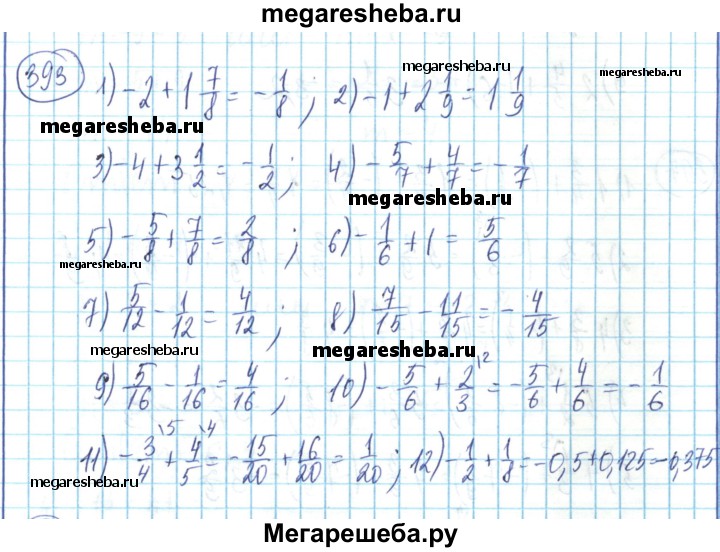 megaresheba.ru
393
1) -2 + 1 7/8 = -1/8 ; 2) -1 + 2 1/9 = 1 1/9
megaresheba.ru
megaresheba.ru
megaresheba.ru
3) -4 + 3 1/2 = -1/2 ; 4) -5/7 + 4/7 = -1/7
megaresheba.ru
5) -5/8 + 7/8 = 2/8 ; 6) -1/6 + 1 = 5/6
megaresheba.ru
7) 5/12 - 1/12 = 4/12 ; 8) 7/15 - 11/15 = -4/15
megaresheba.ru
megaresheba.ru
9) 5/16 - 1/16 = 4/16 ; 10) -5/6 + 2/3 \2 = -5/6 + 4/6 = -1/6
11) -3/4 \5 + 4/5 \4 = -15/20 + 16/20 = 1/20 ; 12) -1/2 + 1/8 = -0,5+0,125=-0,375
megaresheba.ru
megaresheba.ru
Мегарешеба.ру